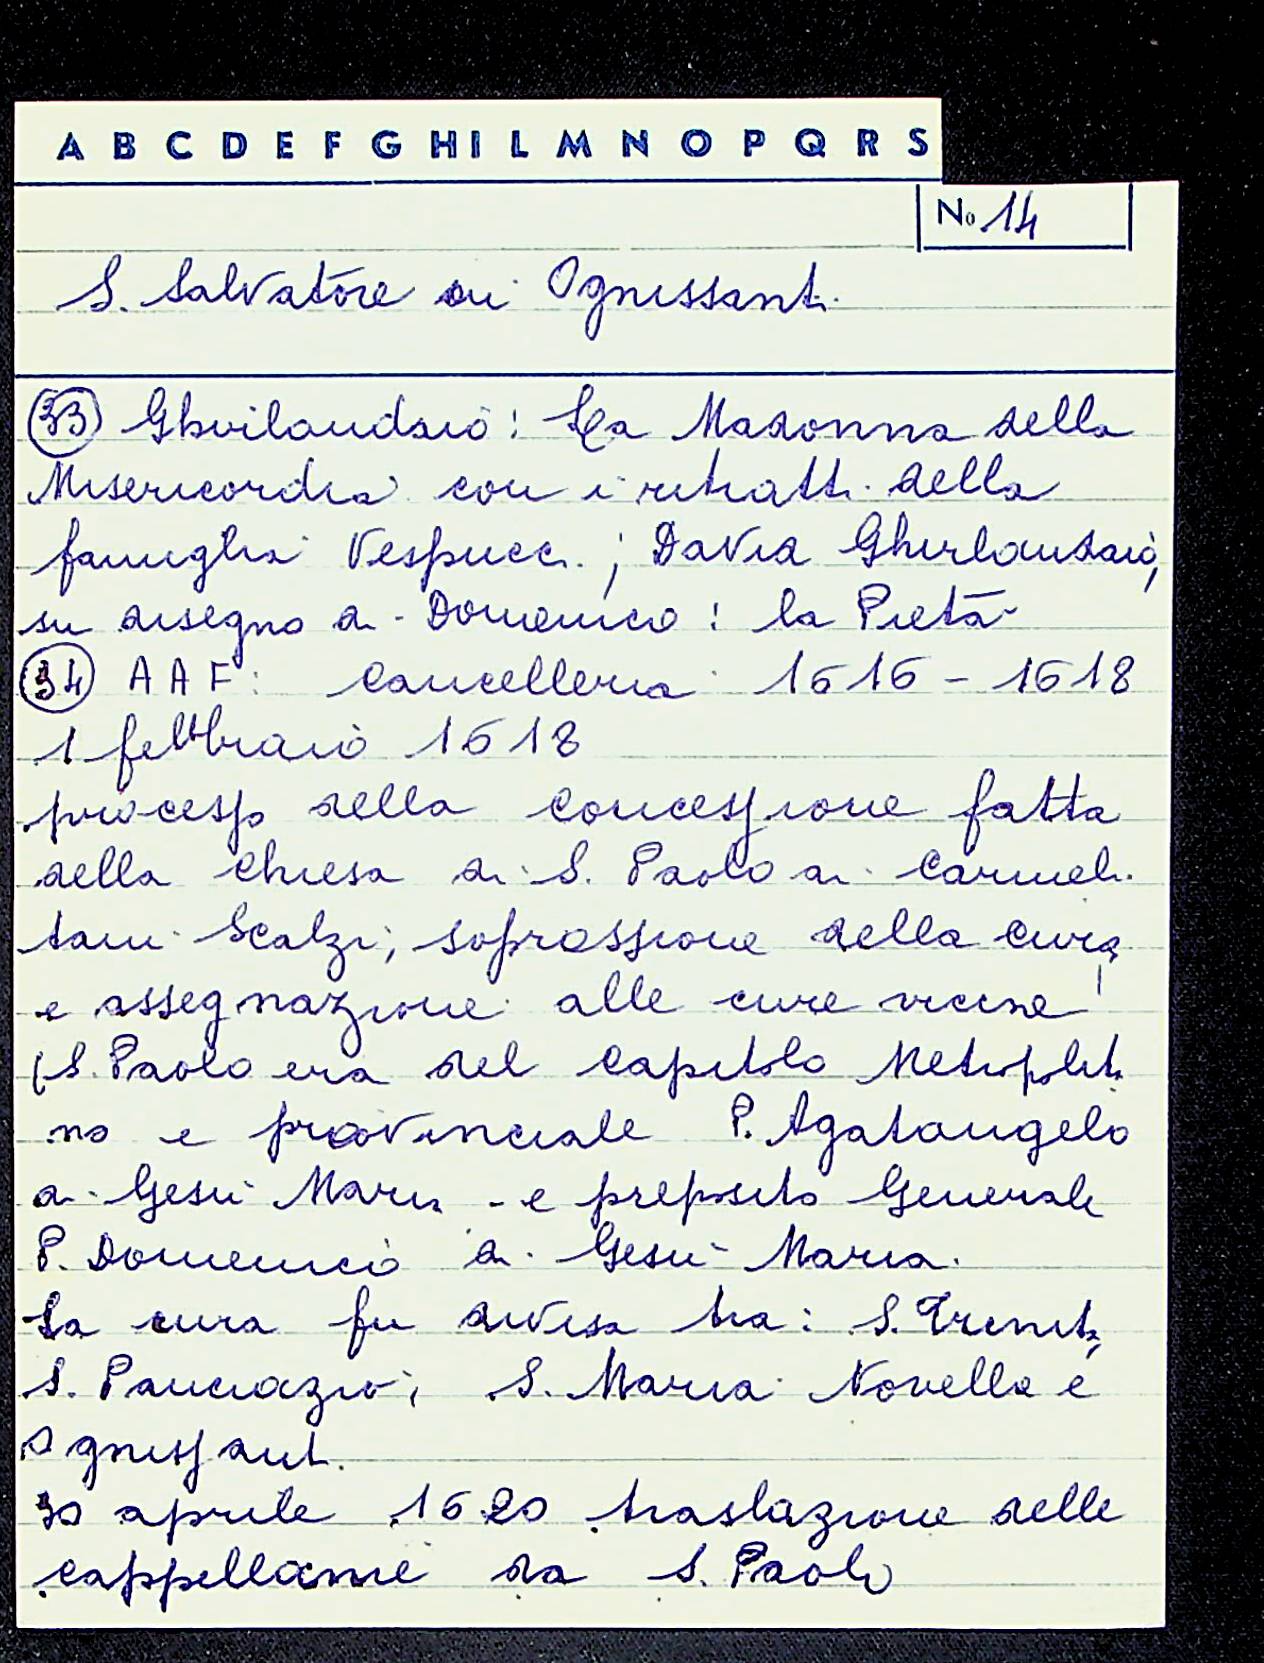 A B C D E F G H I L M N O P Q R S
No 14
S. Salvatore in Ognissanti
33 Ghirlandaio: La Madonna della
Misericordia con i ritratti della
famiglia Vespucci; David Ghirlandaio,
su disegno di Domenico: la Pietà
34 AAF: Cancelleria 1616 - 1618
1 febbraio 1618
processo della concessione fatta
della Chiesa di S. Paolo ai Carmeli
tani Scalzi; soprassione della cura
e assegnazione alle cure vicine!
(S. Paolo era del Capitolo Metropolit
no e provinciale P. Agatangelo
di Gesù Maria - e preposito Generale
P. Domenico di Gesù Maria.
La cura fu divisa tra: S. Trinita,
S. Pancrazio; S. Maria Novella e
Ognissanti.
30 aprile 1620 traslazione delle
cappellanie da S. Paolo